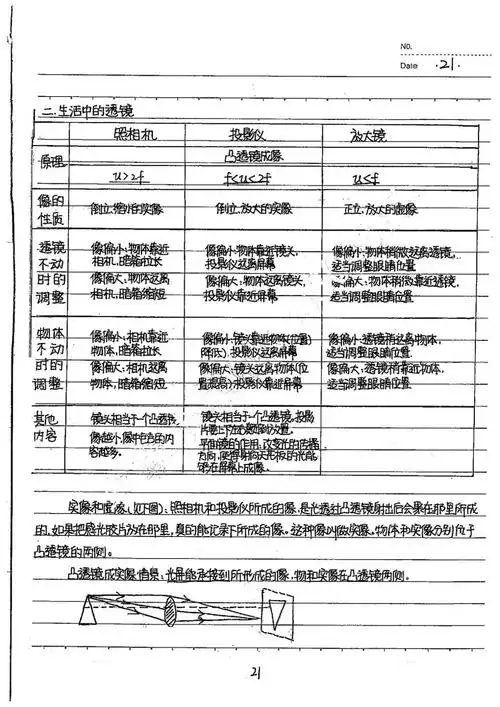 NO.
Date .21.
二.生活中的透镜
照相机 投影仪 放大镜
原理 凸透镜成像
u>2f f<u<2f u<f
像的性质 倒立.缩小的实像 倒立.放大的实像 正立.放大的虚像
透镜不动时的调整
像偏小:物体靠近相机,暗箱拉长
像偏大:物体远离相机,暗箱缩短
像偏小:物体靠近镜头,投影仪远离屏幕
像偏大:物体远离镜头,投影仪靠近屏幕
像偏小:物体稍微远离透镜,适当调整眼睛位置
像偏大:物体稍微靠近透镜,适当调整眼睛位置
物体不动时的调整
像偏小:相机靠近物体,暗箱拉长
像偏大:相机远离物体,暗箱缩短
像偏小:镜头靠近物体(位置降低),投影仪远离屏幕
像偏大:镜头远离物体(位置提高),投影仪靠近屏幕
像偏小:透镜稍远离物体,适当调整眼睛位置
像偏大:透镜稍靠近物体,适当调整眼睛位置
其他内容
镜头相当于一个凸透镜.
像越小,像中包含的内容越多.
镜头相当于一个凸透镜,投影片要上下左右颠倒放置.
平面镜的作用:改变光的传播方向,使得射向天花板的光能够在屏幕上成像.
实像和虚像(见下图):照相机和投影仪所成的像,是光透过凸透镜射出后会聚在那里所成
的,如果把感光胶片放在那里,真的能记录下所成的像。这种像叫做实像。物体和实像分别位于
凸透镜的两侧。
凸透镜成实像情景:光屏能承接到所形成的像,物和实像在凸透镜两侧。
21